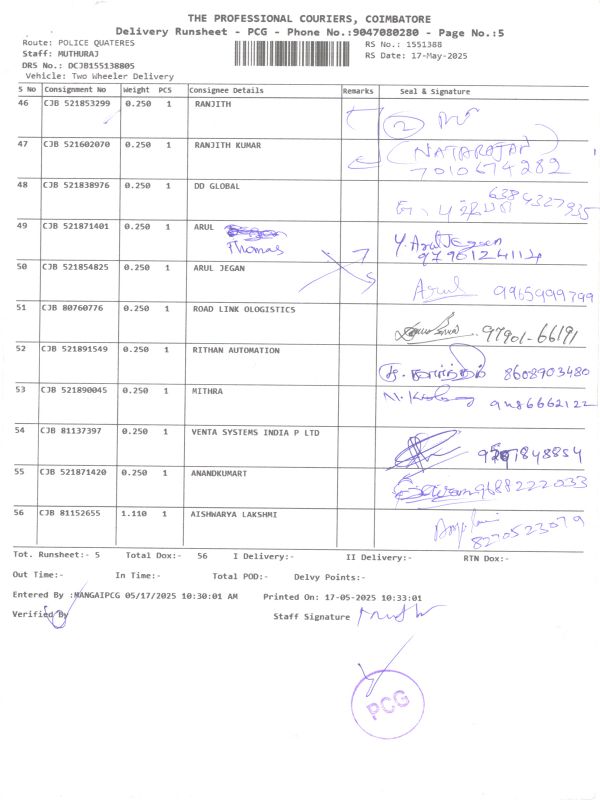 THE PROFESSIONAL COURIERS, COIMBATORE
Delivery Runsheet - PCG - Phone No.:9047080280 - Page No.:5
Route: POLICE QUATERES RS No.: 1551388
Staff: MUTHURAJ RS Date: 17-May-2025
DRS No.: DCJB155138805
Vehicle: Two Wheeler Delivery
S No Consignment No Weight PCS Consignee Details Remarks Seal & Signature
46 CJB 521853299 0.250 1 RANJITH 2
47 CJB 521602070 0.250 1 RANJITH KUMAR NATARAJAN
7010674282
48 CJB 521838976 0.250 1 DD GLOBAL 6384327935
49 CJB 521871401 0.250 1 ARUL Y. Arul Jegan
Thomas 9796124114
50 CJB 521854825 0.250 1 ARUL JEGAN Arul 9965999799
51 CJB 80760776 0.250 1 ROAD LINK OLOGISTICS 97901-66191
52 CJB 521891549 0.250 1 RITHAN AUTOMATION 8608903480
53 CJB 521890045 0.250 1 MITHRA 9486662122
54 CJB 81137397 0.250 1 VENTA SYSTEMS INDIA P LTD
55 CJB 521871420 0.250 1 ANANDKUMART 9688222033
56 CJB 81152655 1.110 1 AISHWARYA LAKSHMI 8270523079
Tot. Runsheet:- 5 Total Dox:- 56 I Delivery:- II Delivery:- RTN Dox:-
Out Time:- In Time:- Total POD:- Delvy Points:-
Entered By :MANGAIPCG 05/17/2025 10:30:01 AM Printed On: 17-05-2025 10:33:01
Verified By Staff Signature
PCG